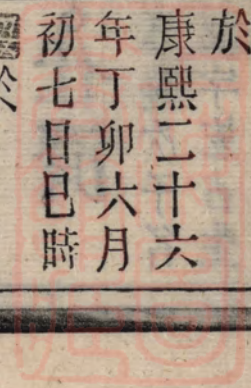 於
康熙二十六
年丁卯六月
初七日巳時
於